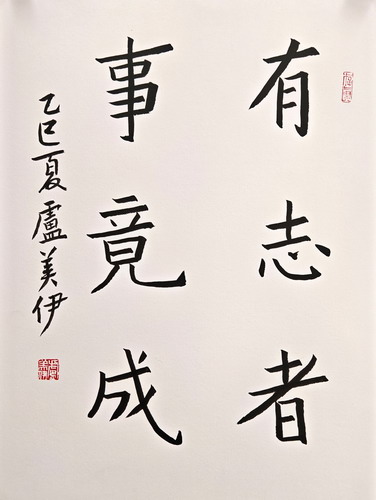 有志者
事竟成
乙巳夏盧美伊